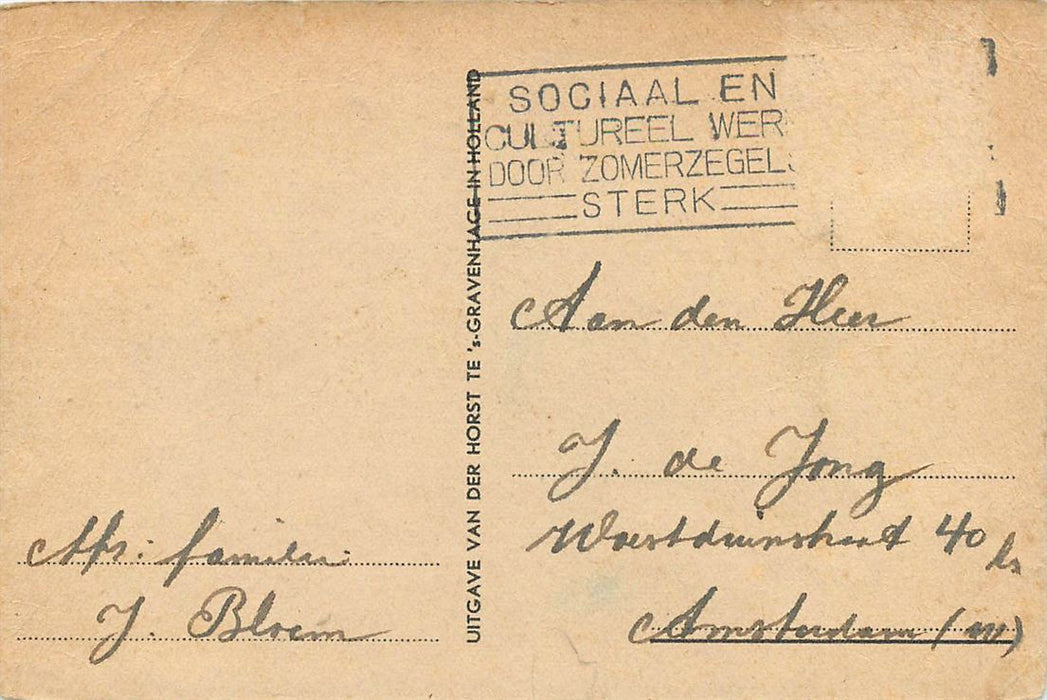 SOCIAAL EN
CULTUREEL WER
DOOR ZOMERZEGELS
STERK
UITGAVE VAN DER HORST TE 's-GRAVENHAGE IN HOLLAND
Aan den Heer
J. de Jong
Woestduinstraat 40 hs
Amsterdam (W)
Afs: familie
J. Bloem